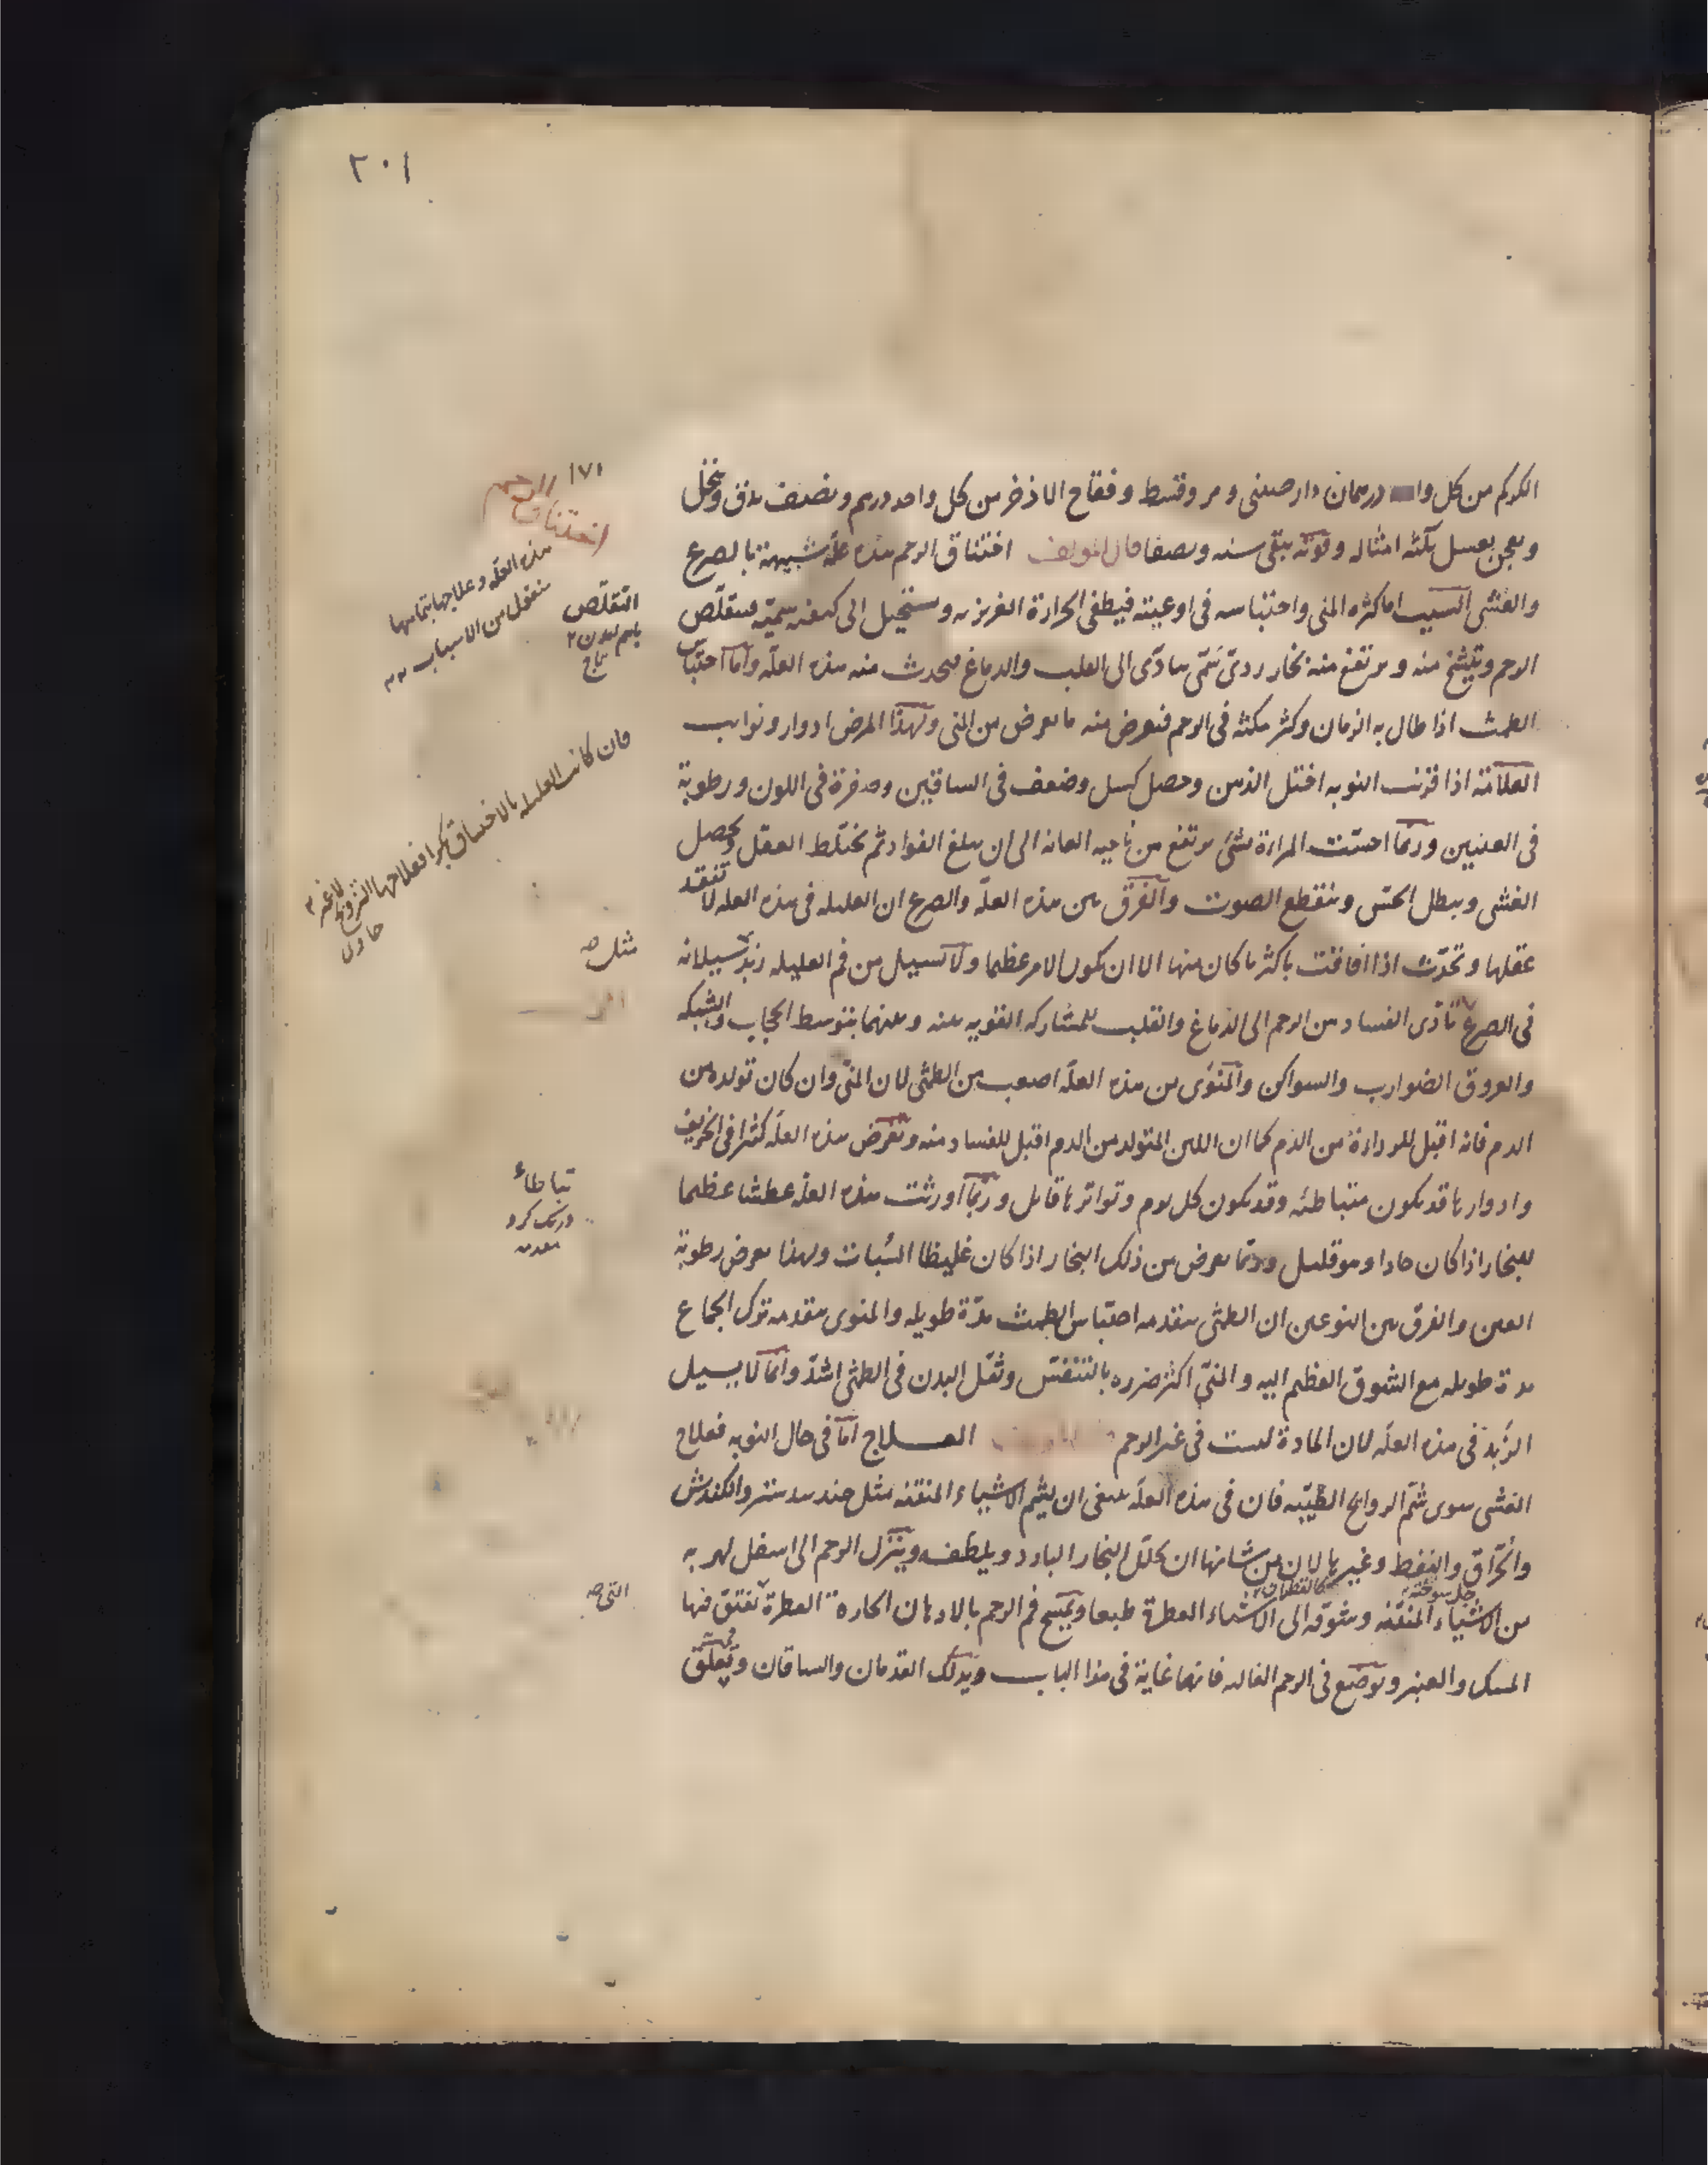 ٢٠١
الكركم من كل واحد درهمان دارصينى ومر وقسط وفقاح الاذخر من كل واحد درهم ونصف يدق وينخل
ويعجن بعسل ثلثه امثاله وقوته يبقى سنه ونصفا قال المولف اختناق الرحم هذه علة شبيهة بالصرع
والغشى السبب اما كثره المنى واحتباسه فى اوعيته فيطفى الحرارة الغريزيه ويستحيل الى كيفيه سميّه فيتقلّص
الرحم ويتشنج منه ويرتفع منه بخار ردىّ سمّى يتادّى الى القلب والدماغ فيحدث منه هذه العلّه وامّا احتباس
الطمث اذا طال به الزمان وكثر مكثه فى الرحم فيعرض منه ما يعرض من المنى ولهذا المرض ادوار ونوايب
العلامة اذا قربت النوبه اختل الذهن وحصل كسل وضعف فى الساقين وصفرة فى اللون ورطوبة
فى العينين وربمّا احسّت المراءة بشئ يرتفع من ناحيه العانه الى ان يبلغ الفواد ثم يختلط العقل ويحصل
الغشى ويبطل الحسّ وينقطع الصوت والفرق بين هذه العلّه والصرع ان العليله فى هذه العله لا تفقد
عقلها وتحدّث اذا افاقت باكثر ما كان منها الا ان يكون الامر عظيما ولا تسيل من فم العليله زبد سيلانه
فى الصرع تادّى الفساد من الرحم الى الدماغ والقلب للمشاركه القويه بينه وبينهما بتوسط الحجاب والشبكه
والعروق الضوارب والسواكن والمنوى من هذه العلّه اصعب من الطمثى لان المنى وان كان تولده من
الدم فانه اقبل للرداءة من الدم كما ان اللبن المتولد من الدم اقبل للفساد منه وتعرض هذه العلّه كثيرا فى الخريف
وادوارها قد يكون متباطئه وقد يكون كل يوم وتواترها قاتل وربّما اورثت هذه العله عطشا عظيما
للبخار اذا كان حادا وهو قليل وربّما يعرض من ذلك البخار اذا كان غليظا السّبات ولهذا يعرض رطوبة
العين والفرق بين النوعين ان الطمثى يتقدمه احتباس الطمث مدّة طويله والمنوى يتقدمه ترك الجماع
مدة طويله مع الشوق العظيم اليه والمنىّ اكثر ضرره بالتنفّس وثقل البدن فى الطمثى اشدّ وانّما لا يسيل
الزّبد فى هذه العلّه لان المادة ليست فى غير الرحم العلاج امّا فى حال النوبه فعلاج
الغشى سوى شمّ الروايح الطيّبه فان فى هذه العلّه ينبغى ان يشم الاشياء المنتنه مثل جندبيدستر والكندش
والحرّاق والنفط وغيرها لان من شانها ان يحلّل البخار البارد ويلطفه وينزل الرحم الى اسفل لهربه
من الاشياء المنتنه وشوقه الى الاشياء العطرة طبعا ويمسح فم الرحم بالادهان الحاره العطرة تفتق فيها
المسك والعنبر ويوضع فى الرحم الغاليه فانها غاية فى هذا الباب ويدلك القدمان والساقان ويعلق
١٧١
اختناق الرحم
هذه العلّه وعلاجها بتمامها
منقول من الاسباب
التقلّص
باهم امدن ٢
تاج
فان كانت العليله بالاختناق بكرا فعلاجها التزويج لا غير
حاوى
مثل صح
تباطاء
درنگ كرد
مقدمه
التى صح